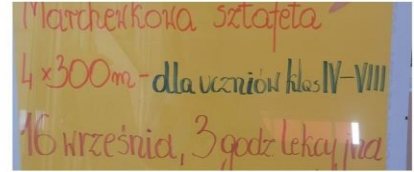 Marchewkowa sztafeta
4 x 300m - dla uczniów klas IV-VIII
16 września, 3 godz lekcyjna